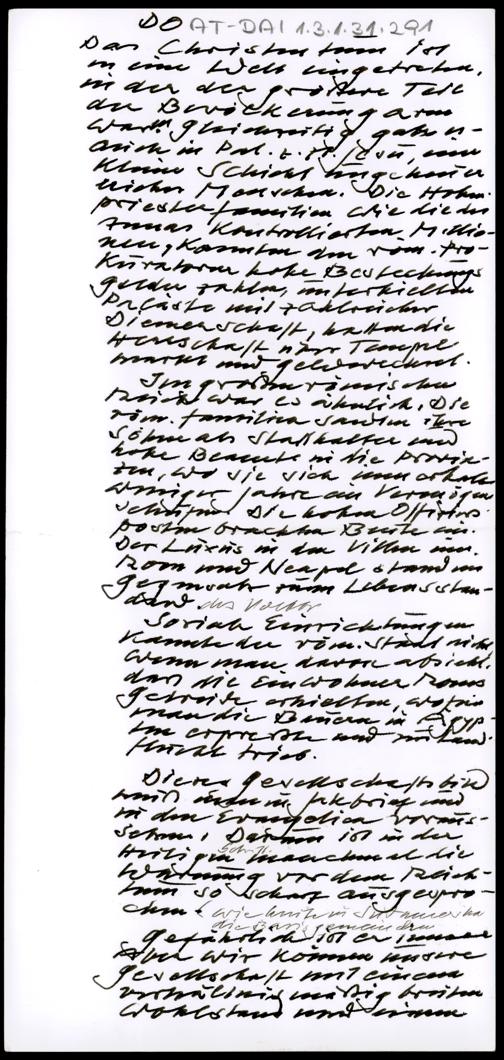 DO AT-DAI 1.3.1.31.291
Das Christentum ist
in eine Welt eingetreten,
in der der größere Teil
der Bevölkerung arm
war. Gleichzeitig gab es
auch in Pal. z. Zt. Jesu, eine
kleine Schicht ungeheuer
reicher Menschen. Die Hohe-
priesterfamilien wie die des
Annas kontrollierten Millio-
nen, konnten den röm. Pro-
kuratoren hohe Bestechungs
gelder zahlen, unterhielten
Paläste mit zahlreicher
Dienerschaft, hatten die
Herrschaft über Tempel
markt und Geldwechsel.
Im großen römischen
Reich war es ähnlich. Die
röm. Familien sandten ihre
Söhne als Statthalter und
hohe Beamte in die Provin-
zen, wo sie sich innerhalb
weniger Jahre ein Vermögen
schufen. Die hohen Offiziers-
posten brachten Beute ein.
Der Luxus in den Villen um
Rom und Neapel stand im
Gegensatz zum Lebensstan-
dard des Volkes
Soziale Einrichtungen
kannte der röm. Staat nicht
wenn man davon absieht,
dass die Einwohner Roms
Getreide erhielten, wofür
man die Bauern in Ägyp-
ten erpresste und zur Land-
flucht trieb.
Dieses Gesellschaftsbild
muß man im Jakbrief und
in den Evangelien voraus-
setzen. Darum ist in der
Heiligen Schrift manchmal die
Warnung vor dem Reich-
tum so scharf ausgespro-
chen. (wie heute in Südamerika
die Basisgemeinden
Gefährlich ist er immer
Aber wir können unsere
Gesellschaft mit einem
verhältnismäßig breiten
Wohlstand und einem